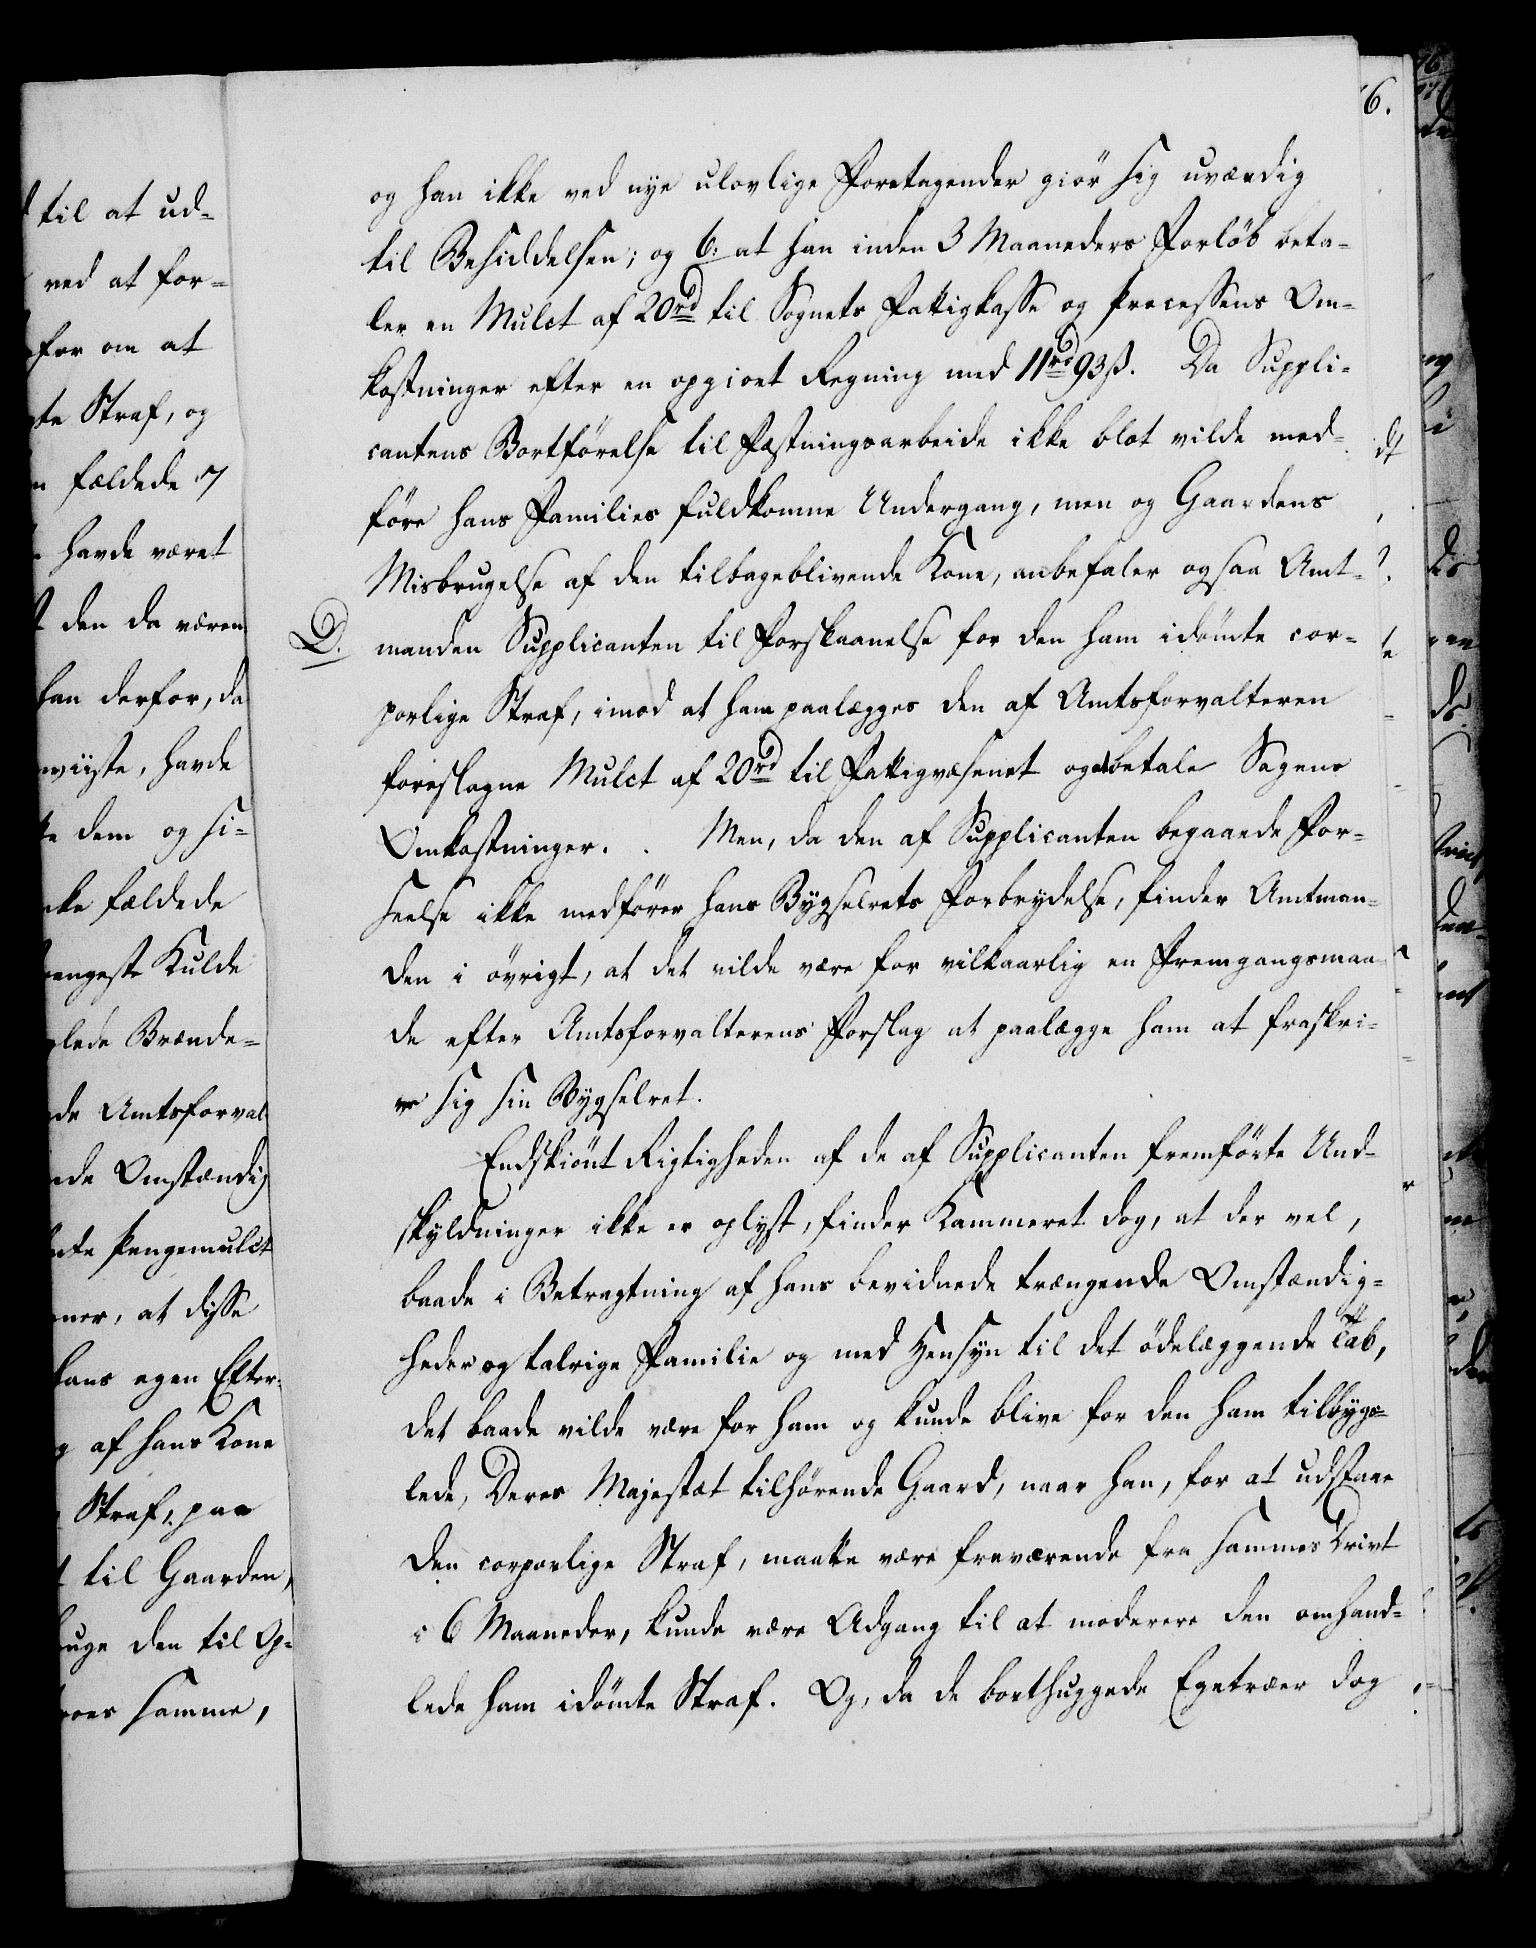 til at ud-
ved at for-
for om at
Straf, og
fældede 7
havde været
den da væren
han derfor, da
havde
dem og si-
fældede
Kulde
Brænde-
de Amtsforval
de Omstændig
Pengemulct
at disse
hans egen Efter-
af hans Kone
Straf, paa
til Gaarden,
den til Op-
samme,
6.
og han ikke ved nye ulovlige Foretagender giör sig uværdig
til Besiddelsen; og 6: at han inden 3 Maaneders Forløb beta-
ler en Mulct af 20rd til Sognets Fattigkasse og Processens Om-
kostninger efter en opgivet Regning med 11rd 93ß. Da Suppli-
cantens Bortförelse til Fæstningsarbeide ikke blot vilde med-
före hans Families fuldkomne Undergang, men og Gaardens
Misbrugelse af den tilbageblivende Kone, anbefaler ogsaa Amt-
D. manden Supplicanten til Forskaanelse for den ham idömte cor-
porlige Straf, imod at ham paalægges den af Amtsforvalteren
foreslagne Mulct af 20rd til Fattigvæsenet og at betale Sagens
Omkostninger. . Men, da den af Supplicanten begaaede For-
seelse ikke medfører hans Bygselrets Forbrydelse, finder Amtman-
den i övrigt, at det vilde være for vilkaarlig en Fremgangsmaa-
de efter Amtsforvalterens Forslag at paalægge ham at fraskri-
ve sig sin Bygselret.
Endskiönt Rigtigheden af de af Supplicanten fremförte Und-
skyldninger ikke er oplyst, finder Kammeret dog, at der vel,
baade i Betragtning af hans bevidnede trængende Omstændig-
heder og talrige Familie og med Hensyn til det ödelæggende Tab,
det baade vilde være for ham og kunde blive for den ham tilbygs-
lede, Deres Majestæt tilhörende Gaard, naar han, for at udstaae
den corporlige Straf, maatte være fraværende fra sammes Drivt
i 6 Maaneder, kunde være Adgang til at moderere den omhand-
lede ham idömte Straf. Og, da de borthuggede Egetræer dog